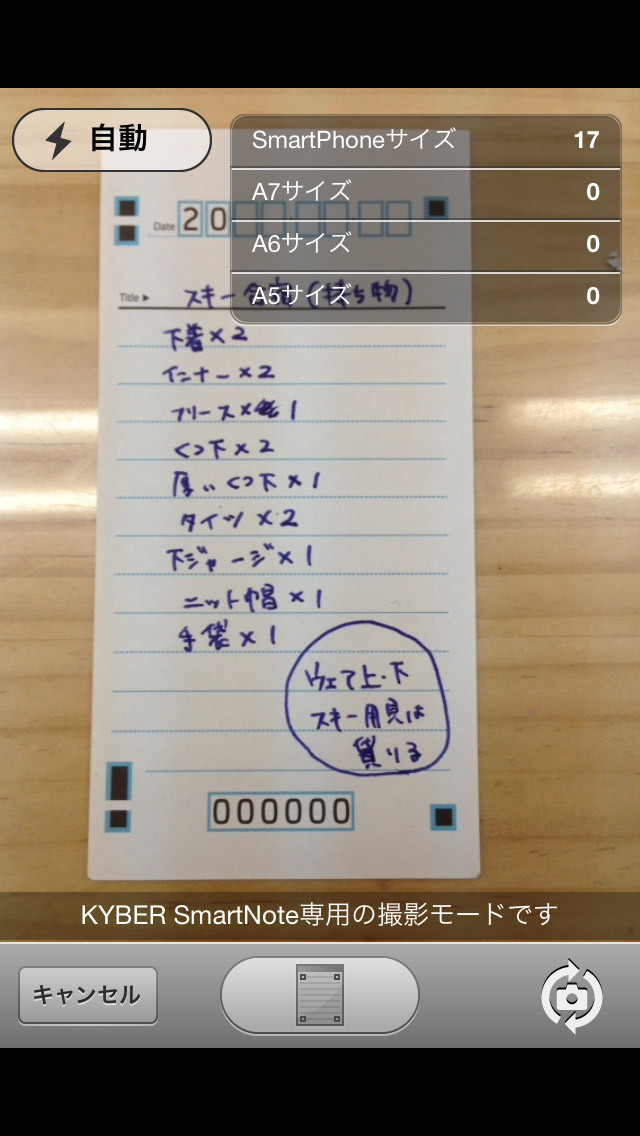 自動
SmartPhoneサイズ 17
A7サイズ 0
A6サイズ 0
A5サイズ 0
Date 20
Title ▶ スキー合宿(持ち物)
下着×2
インナー×2
フリース× 1
くつ下×2
厚いくつ下×1
タイツ×2
下ジャージ×1
ニット帽×1
手袋×1
ウェア上・下
スキー用具は
借りる
000000
KYBER SmartNote専用の撮影モードです
キャンセル